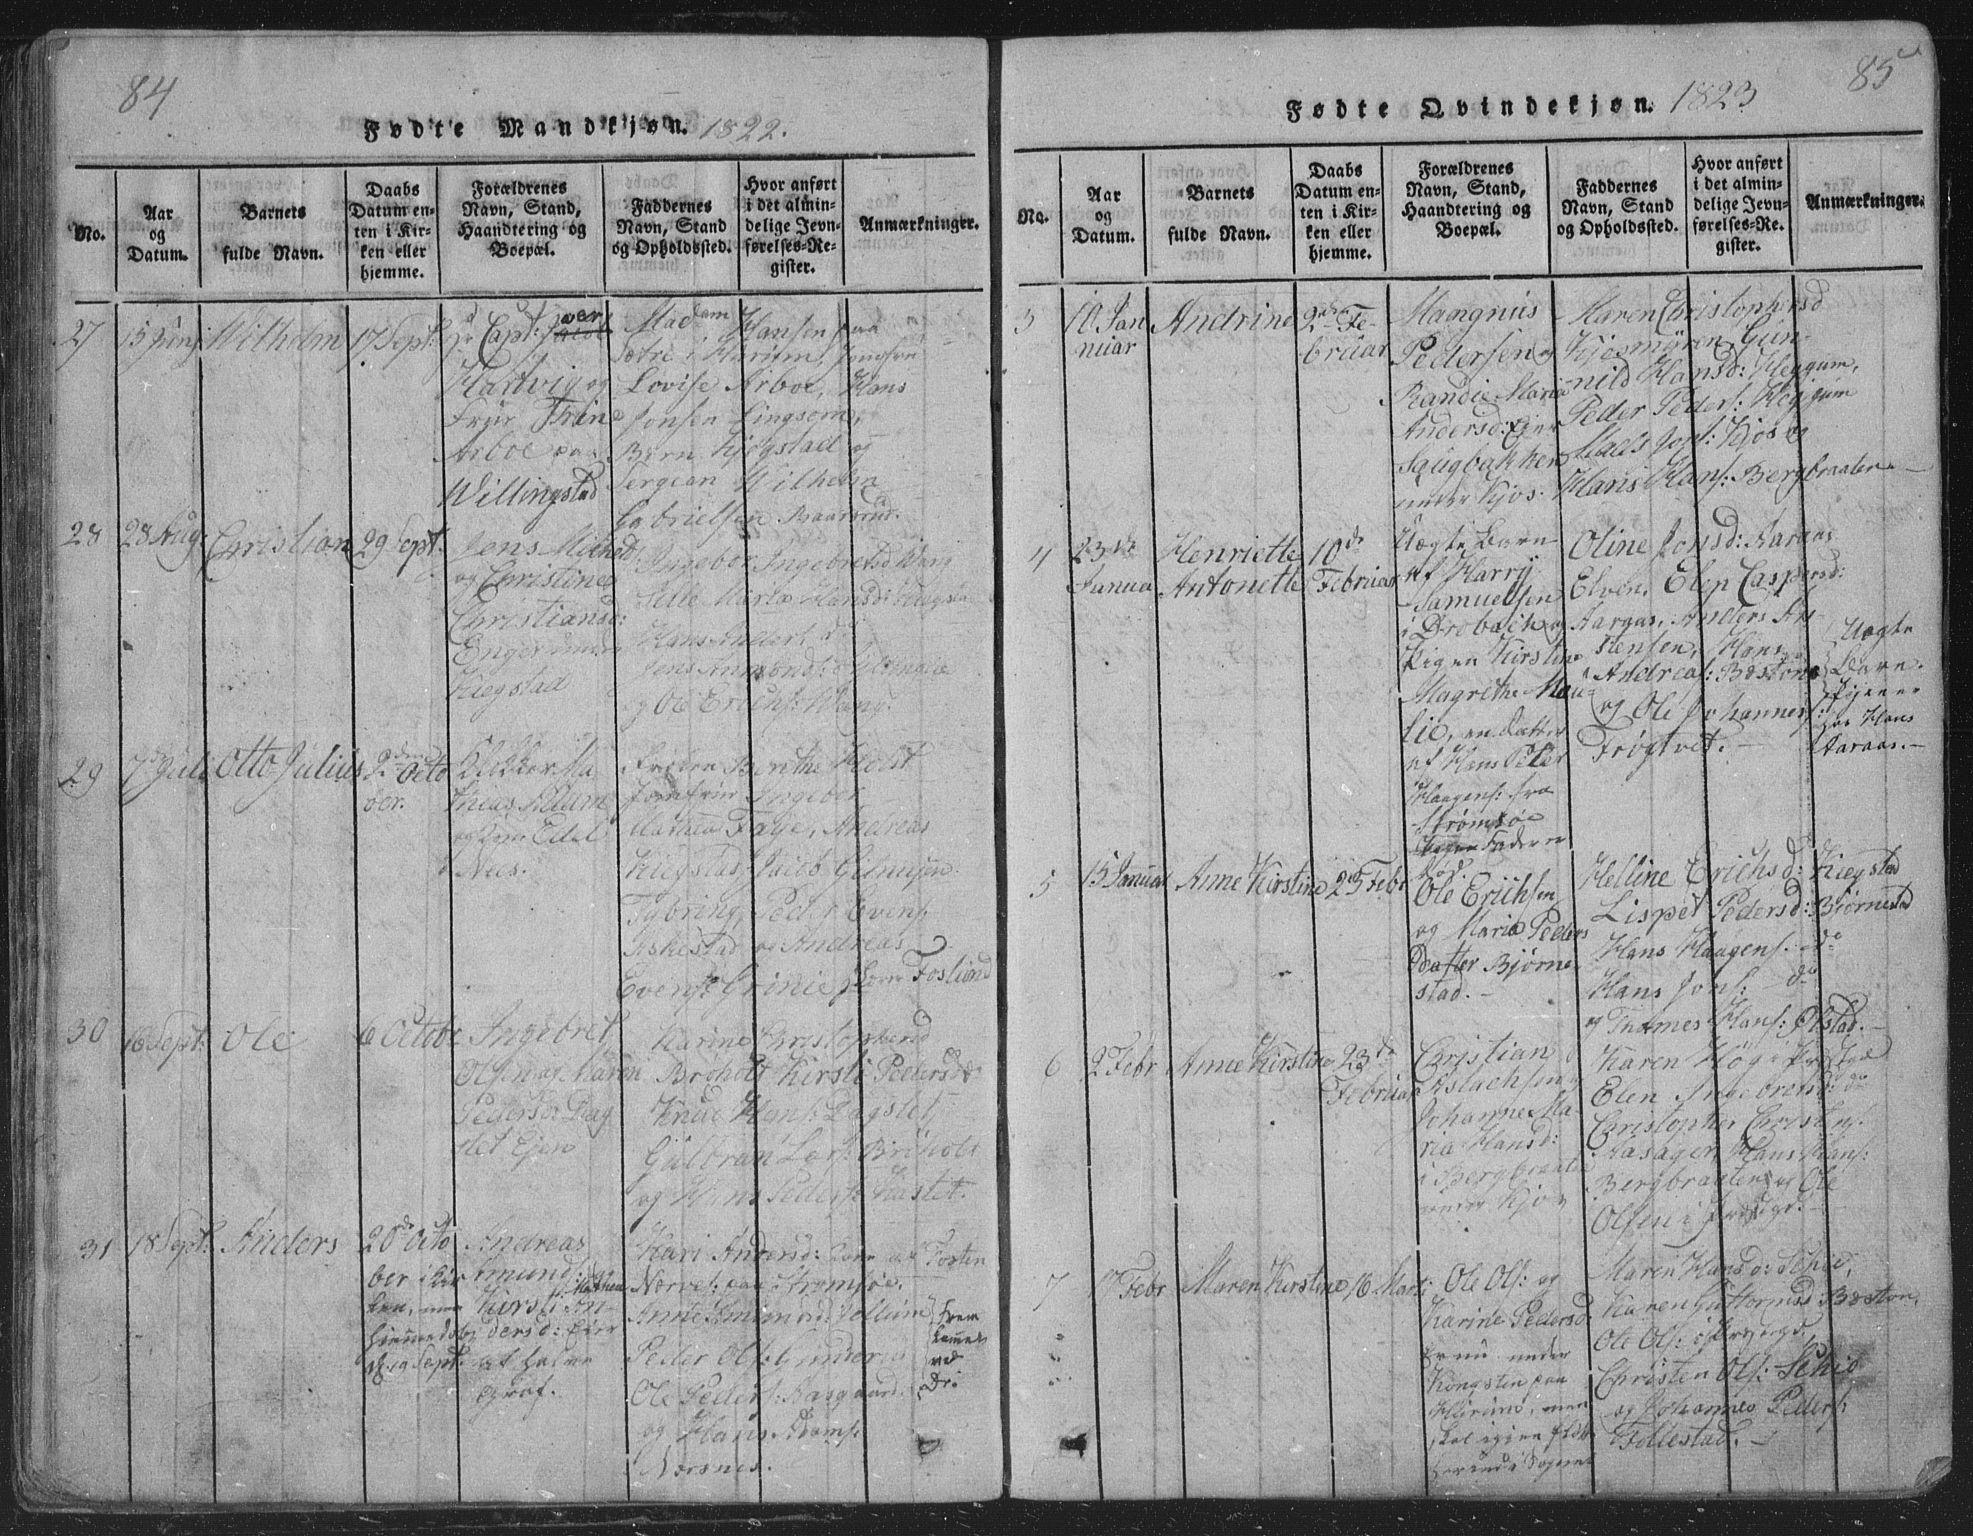 84
Fødte Mandkjøn. 1822.
No.
Aar
og
Datum.
Barnets
fulde Navn.
Daabs
Datum en-
ten i Kir-
ken eller
hjemme.
Forældrenes
Navn, Stand,
Haandtering og
Boepæl.
Faddernes
Navn, Stand
og Opholdssted.
Hvor anført
i det almin-
delige Jevn-
førelses-Re-
gister.
Anmærkninger.
27
15 Junj
Wilhelm
17 Sept:
Hr Capt:
Hartvig og
Frue Thrine
Arboe paa
Willingstad
Madam Hansen paa
Sætre i Hurum, Jomfru
Lovise Arboe, Hans
Jonsen Lingsom,
Bærn Kjøgstad og
Sergean Wilhelm
Gabrielsen Baarsrud.
28
28 Aug:
Christian
29 Sept:
Jens Mich
og Christine
Christiansd:
Enger under
Kiegstad
Ingebor Ingebretsd Wang
Sille Maria Hansd:
Hans Anders: do
Jens Anmonds:
og Ole Erichs: Wang.
29
7de Juli
Otto Julius
2den Octo
ber.
Klokker Ma
thias Adam
og Edel
Nus.
Frøken Berthe Holst
Jomfrue Ingebor
Faye, Andreas
Kiegstad, Jacob
Tybring, Peder Evens:
Askestad og Andreas
Evens: Grinie
30
16 Sept:
Ole
6 Octobr
Ingebret
Olsen og Maren
Pedersd: Dag
slet Ejer
Karine Christophersd
Brøholt Kirsti Pedersd do
Knud Hans: Dagslet,
Gulbran Lars: Brøholt
og Hans Peders: Haslet.
31
18 Sept:
Anders
20de Octo
ber i Kir
ken, men
hjemmedøbt
d. 19 Sept.
Andreas
Kirsti An-
dersd: Ejer
af halve
Graf.
Kari Andersd:
Nærves: paa Strømsøe.
Anne
Peder Ols:
Ole Peders: Aasgaard
og Hans Adams:
Nærsnes.
Frem
kommet
ved
Dr:
85
Fødte Qvindekjøn. 1823
No.
Aar
og
Datum.
Barnets
fulde Navn.
Daabs
Datum en-
ten i Kir-
ken eller
hjemme.
Forældrenes
Navn, Stand,
Haandtering og
Boepæl.
Faddernes
Navn, Stand
og Opholdssted.
Hvor anført
i det almin-
delige Jevn-
førelses-Re-
gister.
Anmærkninger.
3
10 Jan
nuar
Andrine
2de Fe-
bruar
Mangnus
Pedersen og
Randie Maria
Andersd: Ejer
Saugbakken
under Kjos.
Maren Christophersd
Kjosmyren, Gun-
nild Hansd: Heggum,
Peder Peders: Heggum
Mads Jons: Kjos og
Hans Hans: Bergbraaten
4
23de
Januar
Henriette
Antonette
10de
Februar
Uægte Barn
af Harrj
Samuelsen
i Drøbach og
Pigen Kirstine
Magrethe Mau
lie, en Datter
af Hans Peter
Haagens: fra
Strømsøe
Faderen
død.
Oline Jonsd: Aaraas
Elven, Elen Caspersd:
Aaraas, Anders An
stensen, Hans
Andreas: Bøstøne
og Ole Johannes:
Frøgtvet.
Uægte
Barn.
tjener
hos Hans
Aaraas.
5
15 Januar
Anne Kirstine
23 Febr
Ole Erichsen
og Maria Peders
Datter Bjørne
stad.
Helline Erichsd: Kiegstad
Lispet Pedersd: Biørnestad
Hans Haagens: do
Hans Jons: do
og Thomes Hans: Ølstad.
6
2 Febr
Anne Kirstine
23de
Februar
Christian
Aslachsen og
Johanne Ma-
ria Hansd:
i Bergbraate
under Kjos
Karen Høg i
Elen Ingebretsd: do
Christopher Christens:
Aasager, Hans Hans:
Bergbraaten og Ole
Olsen i
7
17 Febr
Maren Kirstine
16 Marti
Ole Ols: og
Karine Pedersd:
er nu under
Kongsten paa
Hurum, men
skal igjen flytte
herind i Sognet
Maren Hansd: Schie,
Karen Guttormsd Bøstøn,
Ole Ols:
Christen Ols: Schie
og Johannes Peders:
Tollestad.